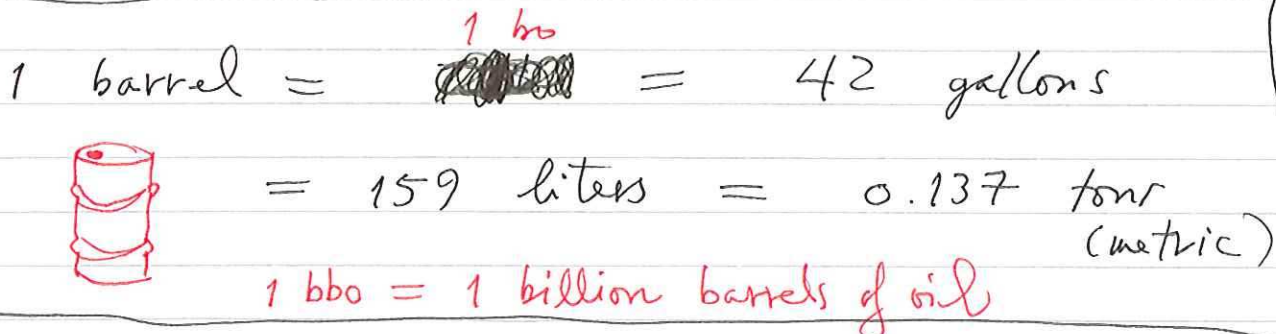 1 bo
1 barrel = = 42 gallons
= 159 liters = 0.137 tons
(metric)
1 bbo = 1 billion barrels of oil